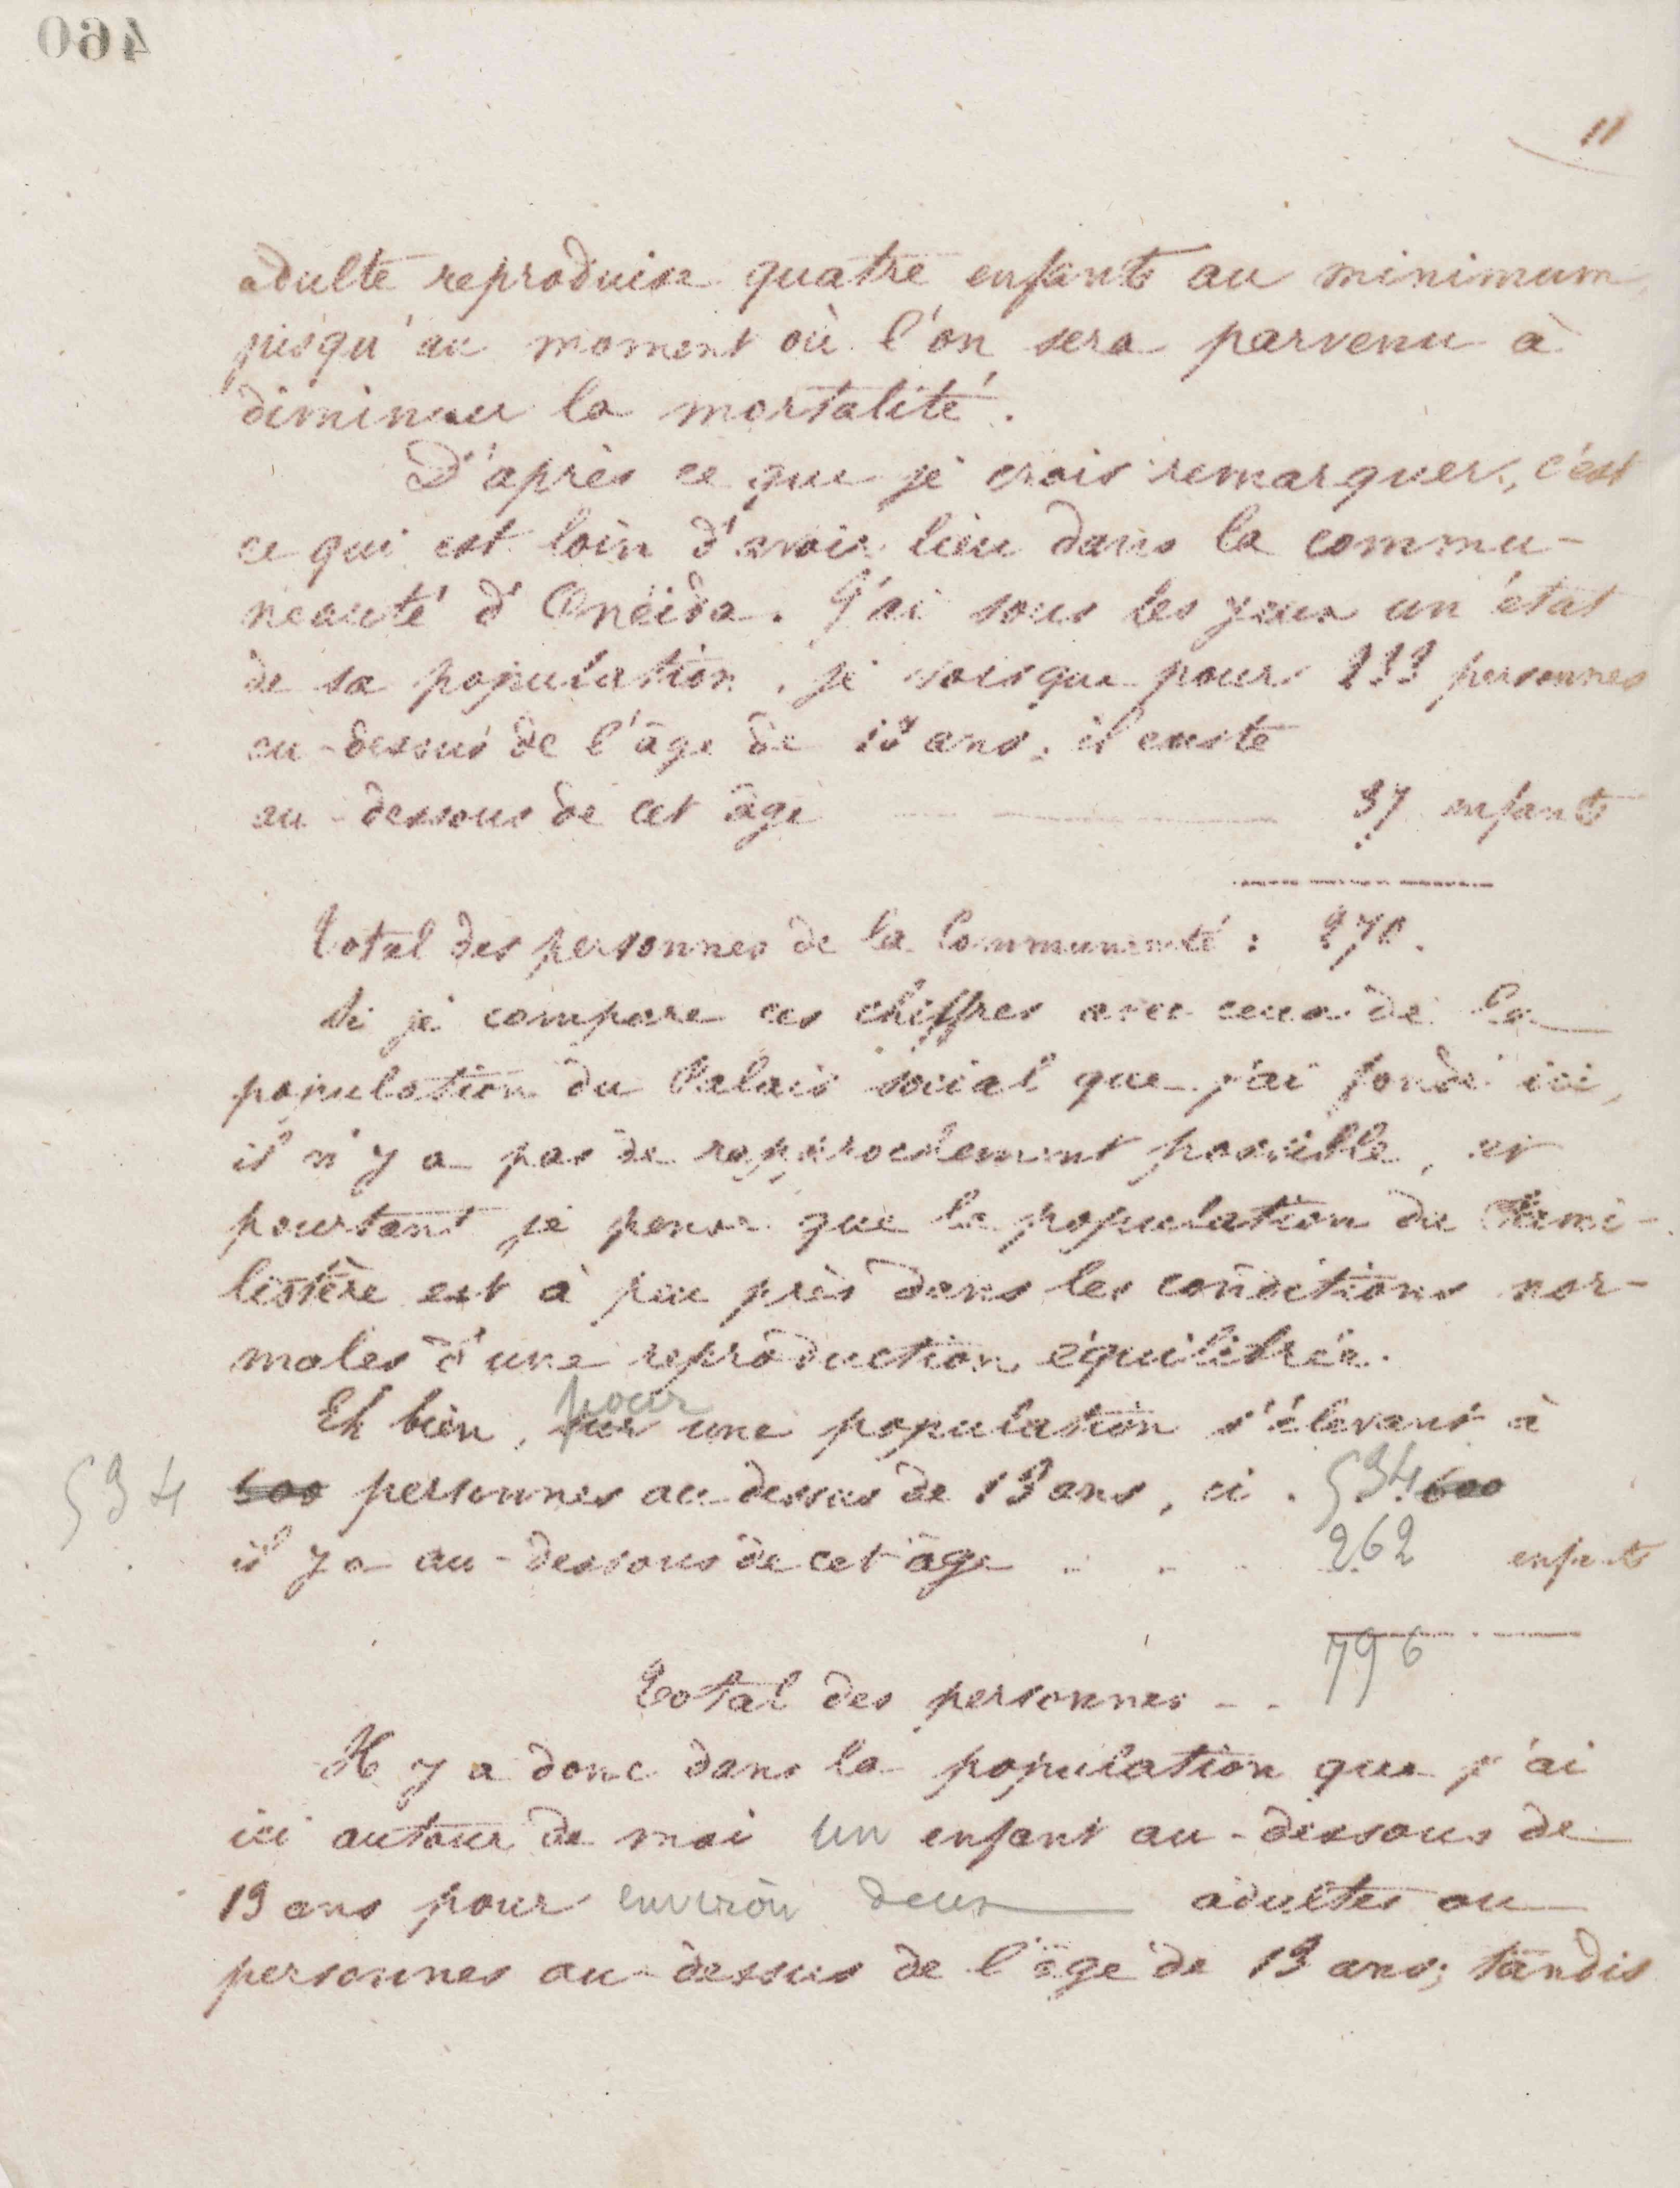 460
11
adulte reproduise quatre enfants au minimum
jusqu'au moment où l'on sera parvenu à
diminuer la mortalité.
D'après ce que je crois remarquer, c'est
ce qui est loin d'avoir lieu dans la commu-
neauté d'Onéida. J'ai sous les yeux un état
de sa population, je vois que pour 233 personnes
au-dessus de l'âge de 13 ans, il existe
au-dessous de cet âge 37 enfants
Total des personnes de la Communauté : 270.
Si je compare ces chiffres avec ceux de la
population du Palais social que j'ai fondé ici,
il n'y a pas de rapprochement possible, et
pourtant je pense que la population du Fami-
listère est à peu près dans les conditions nor-
males d'une reproduction équilibrée.
pour
Eh bien, sur une population s'élevant à
534 600 personnes au-dessus de 13 ans, ci . 534 600
il y a au-dessous de cet âge . . . 262 enfants
796
Total des personnes - -
Il y a donc dans la population que j'ai
ici autour de moi un enfant au-dessous de
13 ans pour environ deux adultes ou
personnes au-dessus de l'âge de 13 ans; tandis